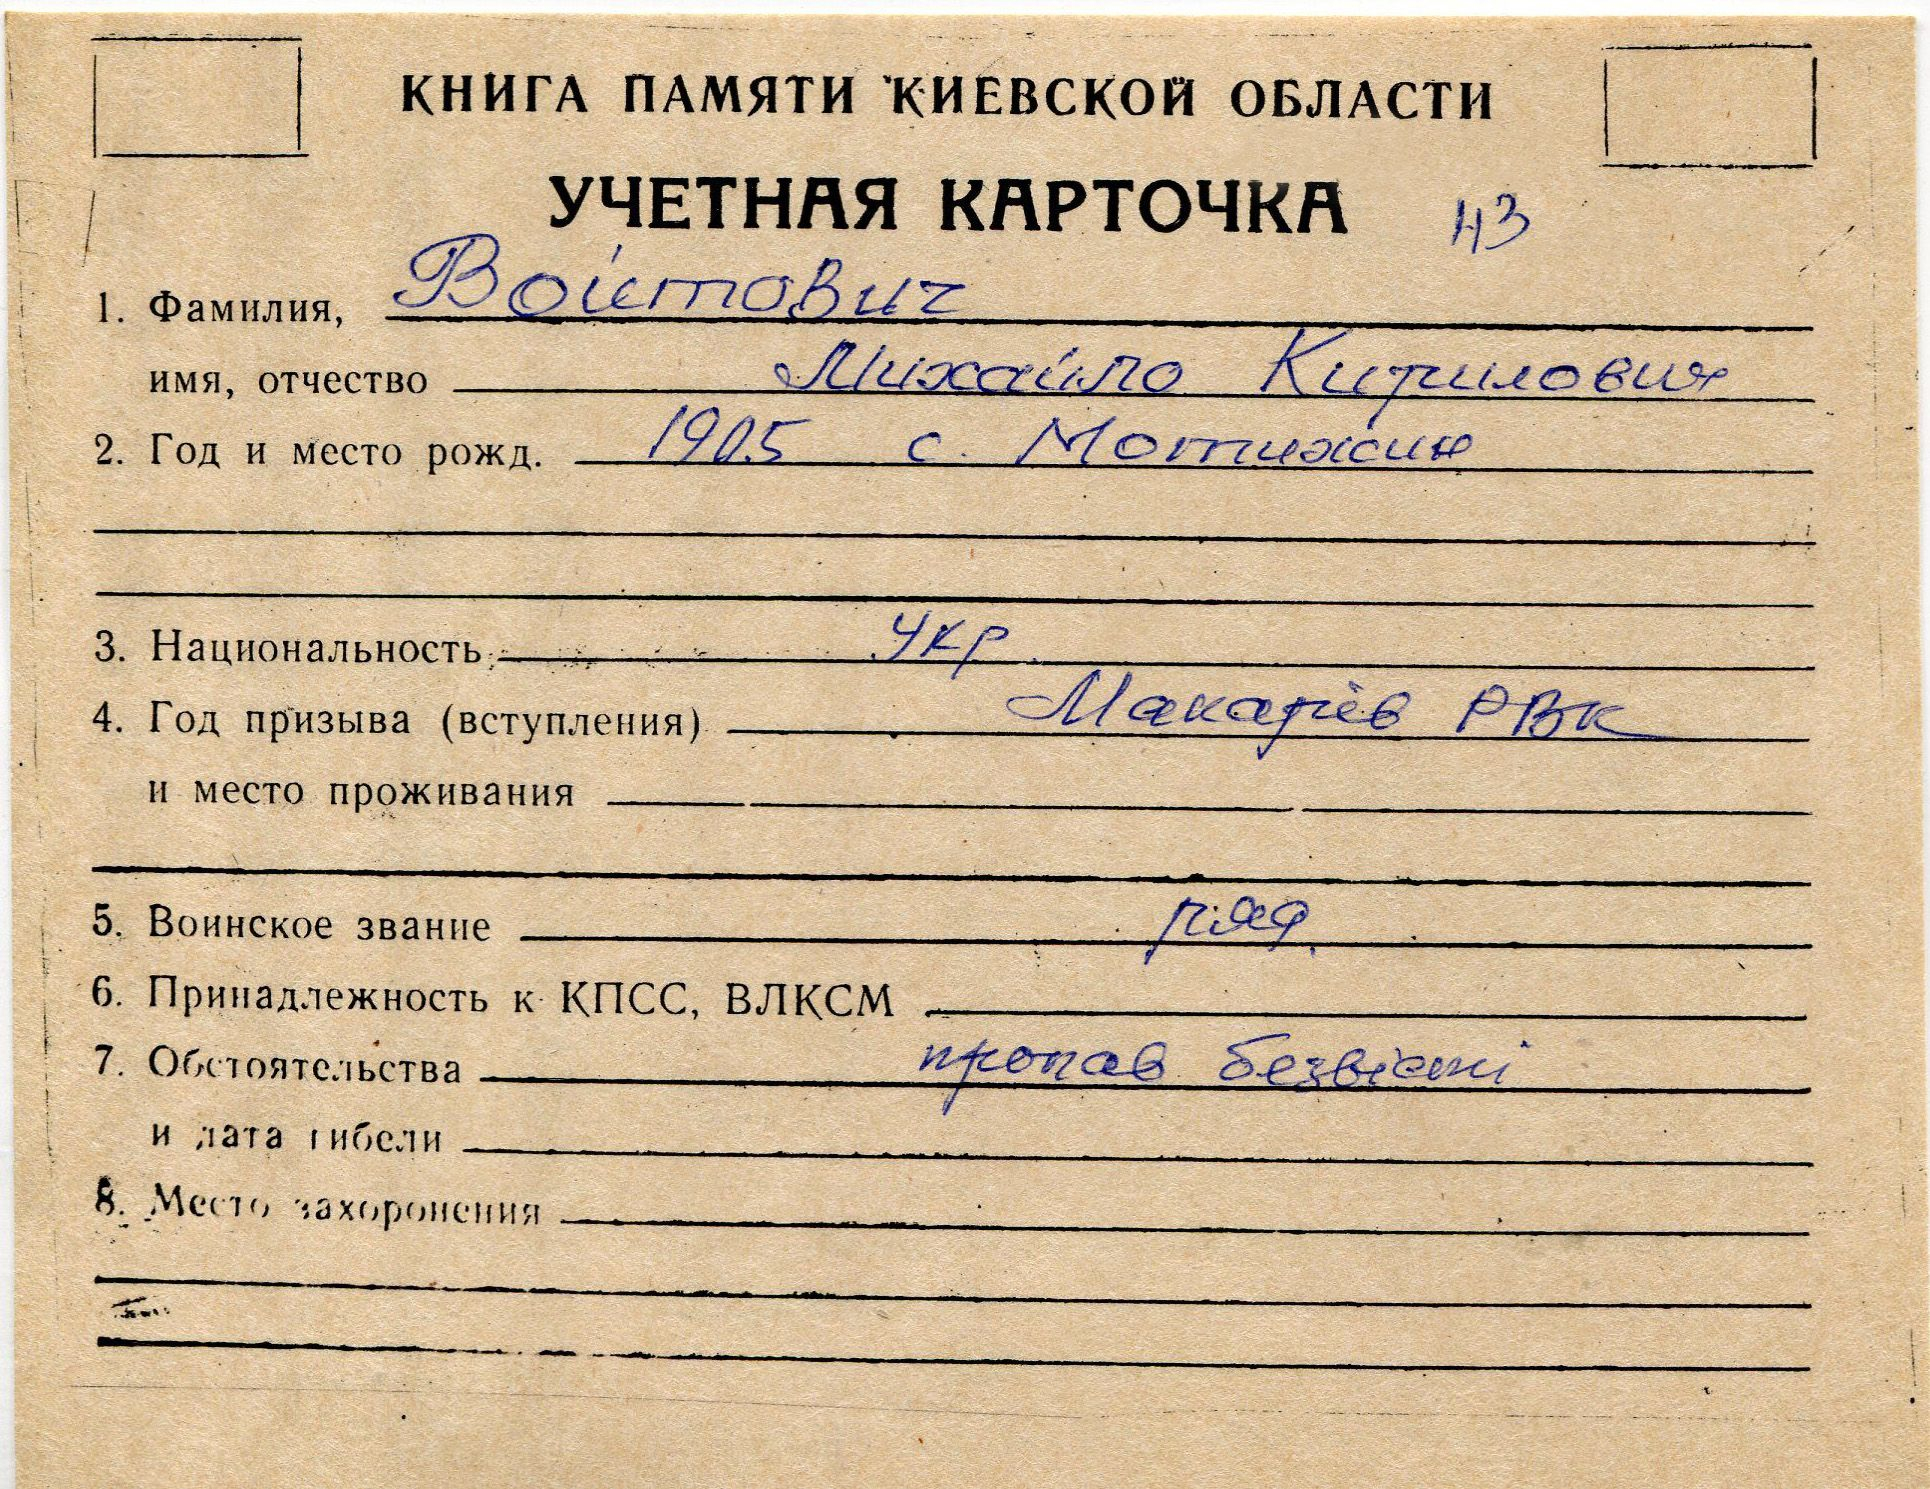 КНИГА ПАМЯТИ КИЕВСКОЙ ОБЛАСТИ
УЧЕТНАЯ КАРТОЧКА
1. Фамилия, Воітович
имя, отчество Михайло Кирилович
2. Год и место рожд. 1905 с. Мотижин
3. Национальность укр
4. Год призыва (вступления) Макарів РВК
и место проживания
5. Воинское звание ряд.
6. Принадлежность к КПСС, ВЛКСМ
7. Обстоятельства пропав безвісті
и дата гибели
8. Место захоронения